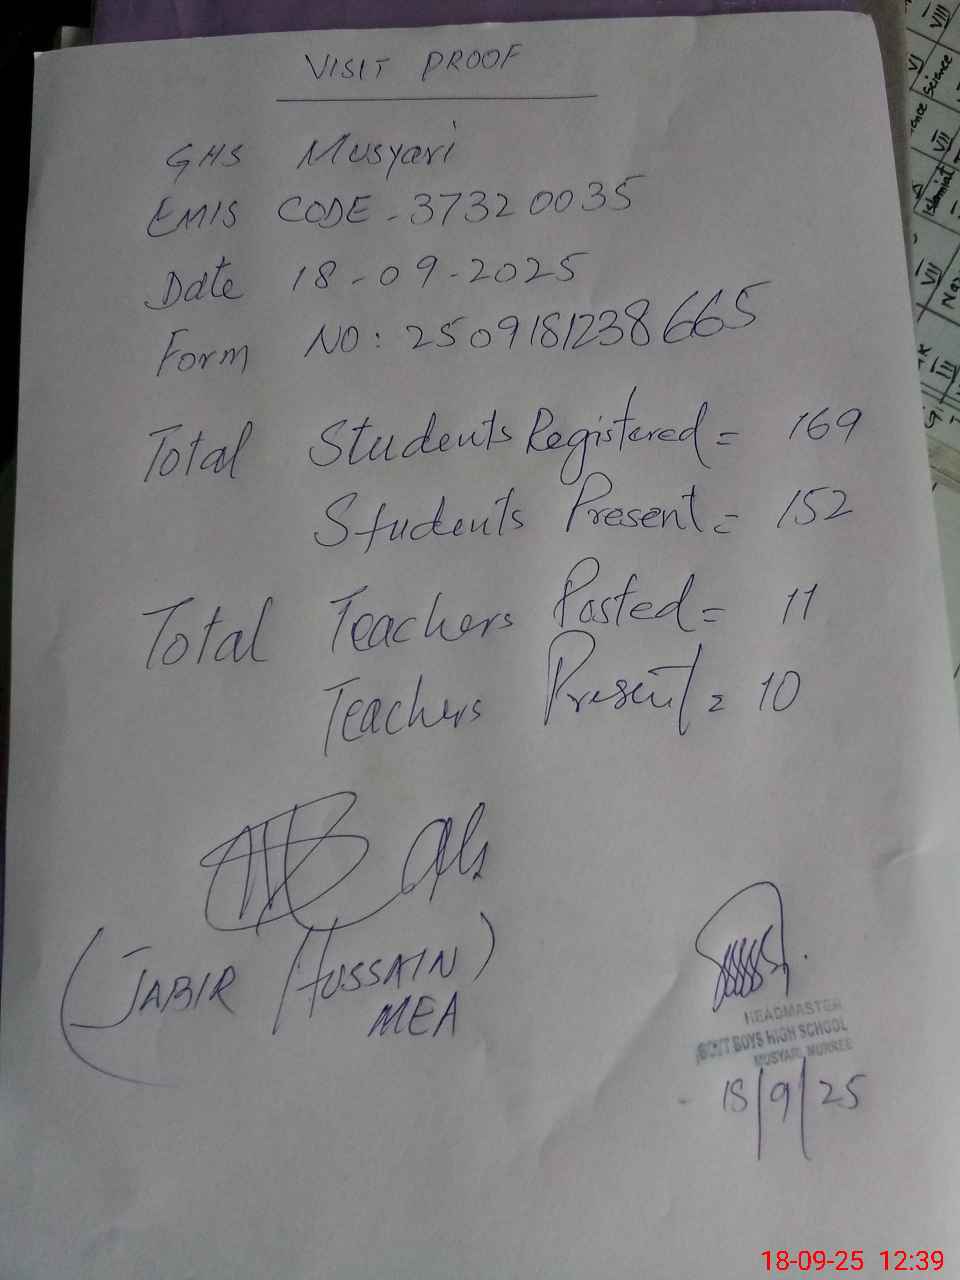 VISIT PROOF
GHS Musyari
EMIS CODE - 37320035
Date 18-09-2025
Form NO: 2509181238665
Total Students Registered = 169
Students Present = 152
Total Teachers Posted = 11
Teachers Present = 10
(JABIR HUSSAIN)
MEA
HEADMASTER
GOVT BOYS HIGH SCHOOL
MUSYARI, MURREE
18/9/25
VI VIII
Science
VII
Islamiat
VII
III
18-09-25 12:39